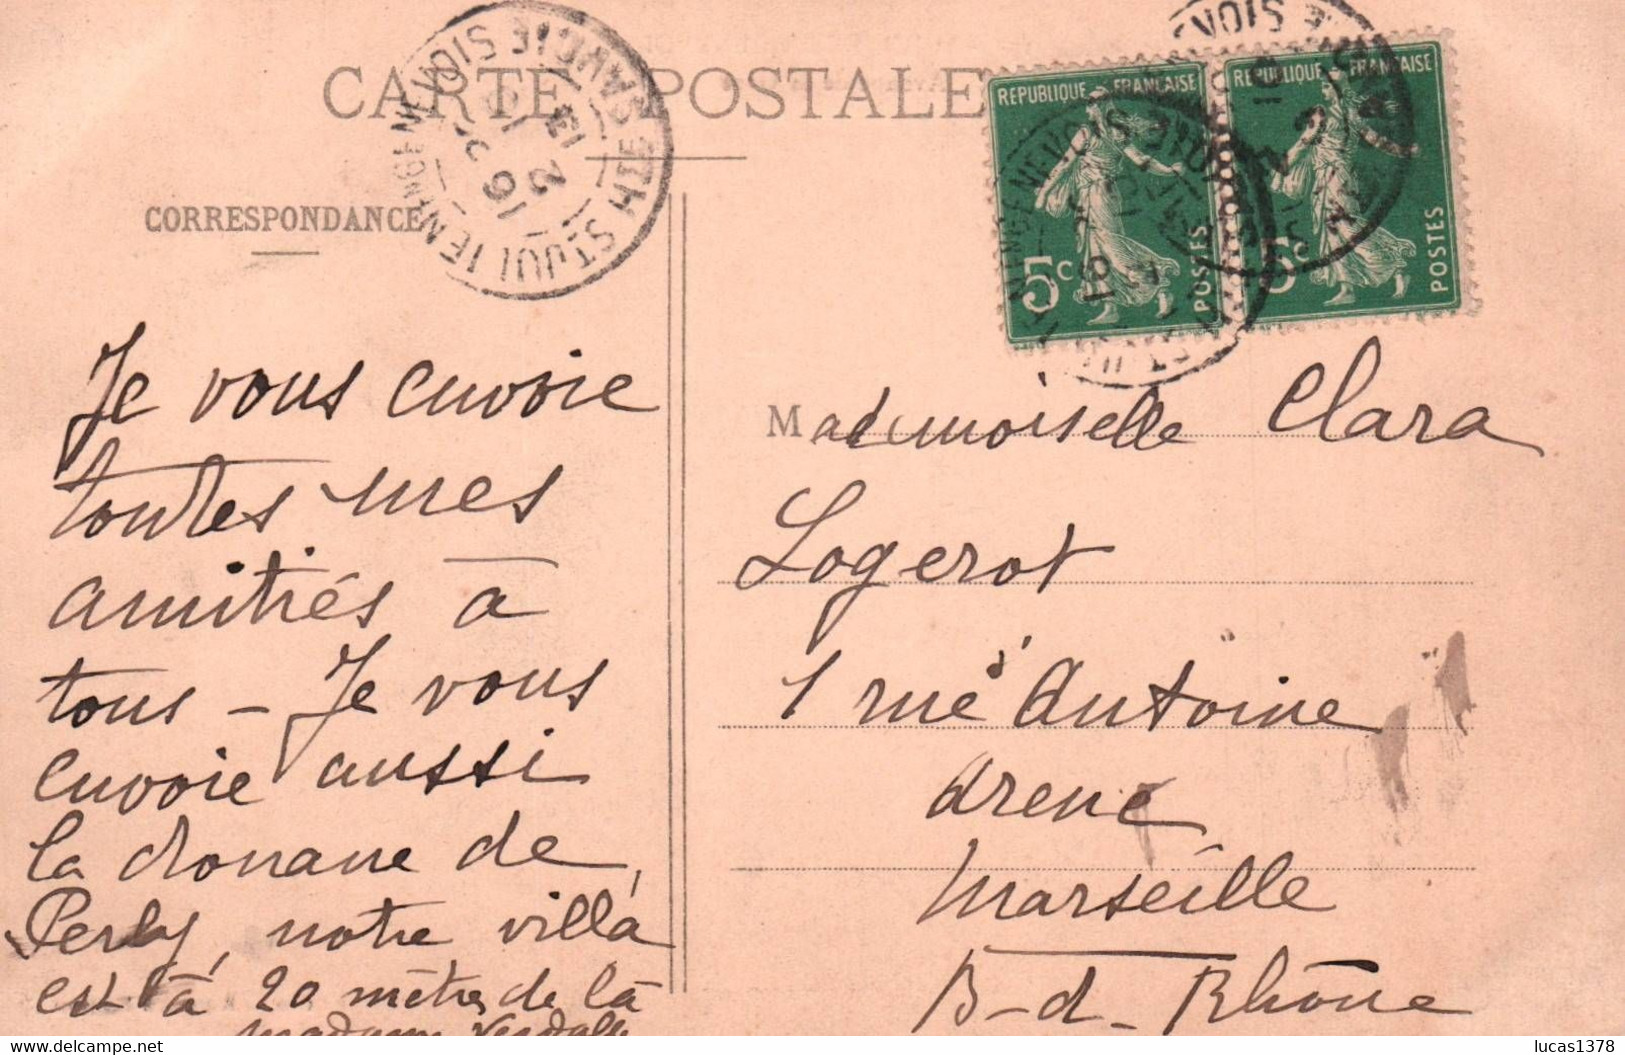 CARTE POSTALE
CORRESPONDANCE
REPUBLIQUE FRANÇAISE
5c POSTES
REPUBLIQUE FRANÇAISE
5c POSTES
Je vous envoie
toutes mes
amitiés à
tous – Je vous
envoie aussi
la douane de
Perly, notre villa
est à 20 mètres de là
madame
Mademoiselle Clara
Logerot
1 rue d'Antoine
Arene
Marseille
B-d-Rhône
www.delcampe.net
lucas1378